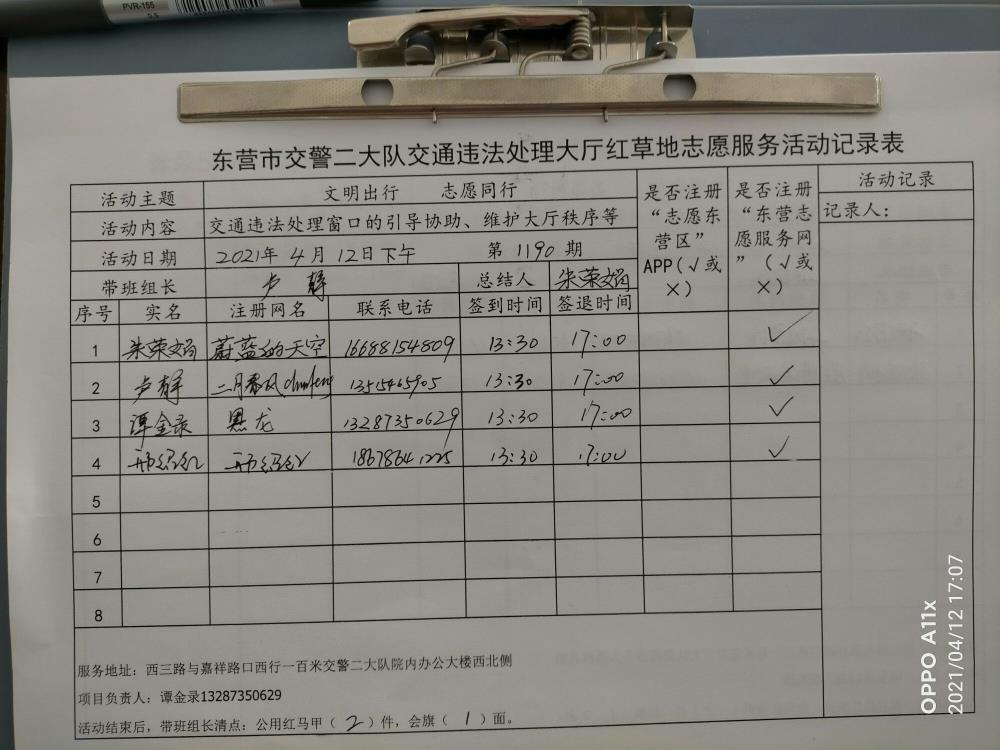 PVR-155
0.5
东营市交警二大队交通违法处理大厅红草地志愿服务活动记录表
活动主题 文明出行 志愿同行 是否注册“志愿东营区”APP(√或×) 是否注册“东营志愿服务网”(√或×) 活动记录
活动内容 交通违法处理窗口的引导协助、维护大厅秩序等 记录人：
活动日期 2021年 4月 12日下午 第 1190 期
带班组长 卢静 总结人 朱荣娟
序号 实名 注册网名 联系电话 签到时间 签退时间
1 朱荣娟 蔚蓝的天空 16688154809 13:30 17:00 ✓
2 卢静 二月春风chunfeng 13515465905 13:30 17:00 ✓
3 谭金录 黑龙 13287350629 13:30 17:00 ✓
4 18678641225 13:30 17:00 ✓
5
6
7
8
服务地址：西三路与嘉祥路口西行一百米交警二大队院内办公大楼西北侧
项目负责人：谭金录13287350629
活动结束后，带班组长清点：公用红马甲（ 2 ）件，会旗（ 1 ）面。
OPPO A11x
2021/04/12 17:07